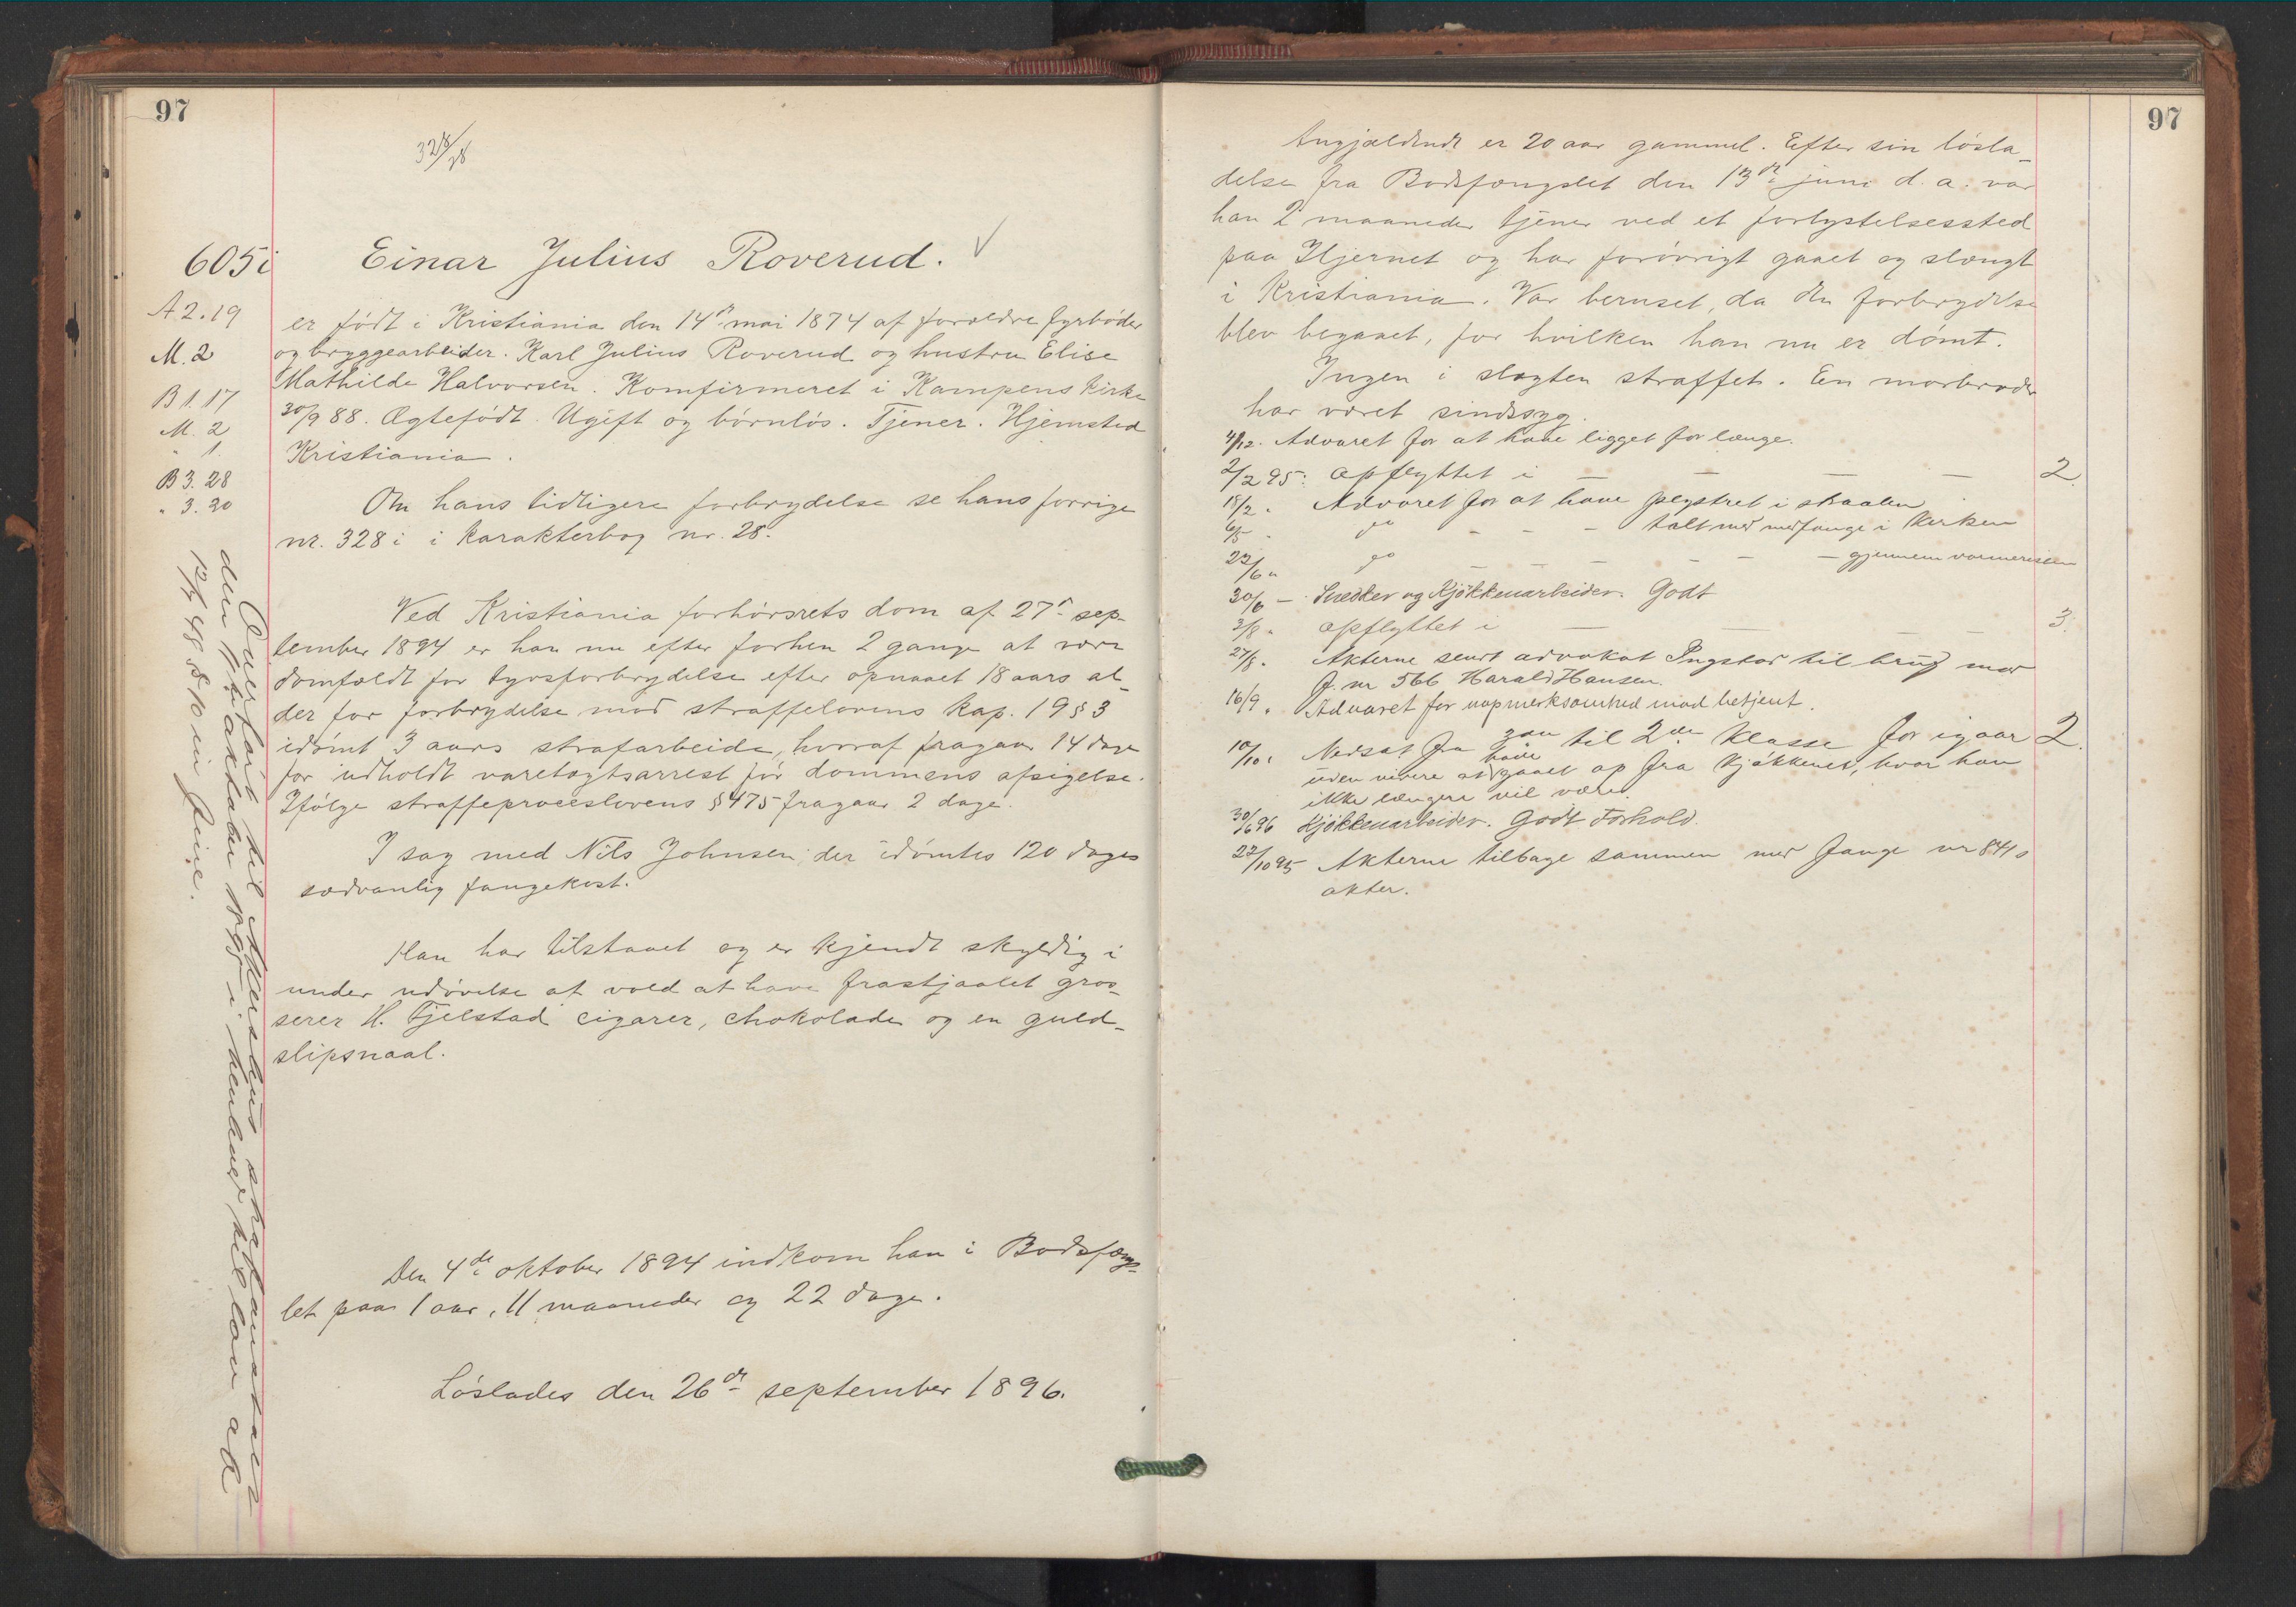 97
328/28
605i
Einar Julius Roverud.
A 2. 19
M. 2
B 1. 17
M. 2
" 1.
B 3. 28
" 3. 20
er født i Kristiania den 14de mai 1874 af forældre fyrbøder
og bryggearbeider Karl Julius Roverud og hustru Elise
Mathilde Halvorsen. Komfirmeret i Kampens kirke
30/9 88. Ægtefødt. Ugift og børnløs. Tjener. Hjemsted
Kristiania.
Om hans tidligere forbrydelse se hans forrige
nr. 328 i i karakterbog nr. 28.
Ved Kristiania forhørsrets dom af 27de sep-
tember 1894 er han nu efter forhen 2 gange at være
domfældt for tyvsforbrydelse efter opnaaet 18 aars al-
der for forbrydelse mod straffelovens kap. 19 § 3
idømt 3 aars strafarbeide, hvoraf fragaar 14 dage
for udholdt varetægtsarrest før dommens afsigelse.
Ifølge straffeproceslovens § 475 fragaar 2 dage.
I sag med Nils Johnsen, der idømtes 120 dages
sædvanlig fangekost.
Han har tilstaaet og er kjendt skyldig i
under udøvelse af vold at have frastjaalet gros-
serer H. Fjelstad cigarer, chokolade og en guld-
slipsnaal.
Den 4de oktober 1894 indkom han i Bodsfæng-
let paa 1 aar, 11 maaneder og 22 dage.
Løslades den 26de september 1896.
Overført til Akershus strafanstalt
den
i henhold til lov af
12/7 48 § 10 in fine.
97
Angjældende er 20 aar gammel. Efter sin løsla-
delse fra Bodsfængslet den 13de juni d. a. var
han 2 maaneder tjener ved et forlystelsessted
paa Hjernet og har forøvrigt gaaet og slængt
i Kristiania. Var beruset, da den forbrydelse
blev begaaet, for hvilken han nu er dømt.
Ingen i slægten straffet. En morbroder
har været sindssyg.
4/12. Advaret for at have ligget for længe.
2/2 95: Opflyttet i — — — — 2
18/2 " Advaret for at have plystret i straalen
6/5 " do - - - talt med medfange i kirken
22/6 " do - - - - - — gjennem varmerisen
30/6 — Snedker og Kjøkkenarbeider. Godt
3/8 " Opflyttet i — — — — 3.
27/8 " Akterne sendt advokat Ingstad til brug mod
f. nr 566 Harald Hansen.
16/9 " Advaret for uopmerksomhed mod betjent.
10/10 " Nedsat fra 3die til 2den klasse for igaar 2.
uden videre at have gaaet op fra kjøkkenet, hvor han
ikke længere vil være.
30/6 96 Kjøkkenarbeider. Godt Forhold.
22/10 95 Akterne tilbage sammen med fange nr 841s
akter.